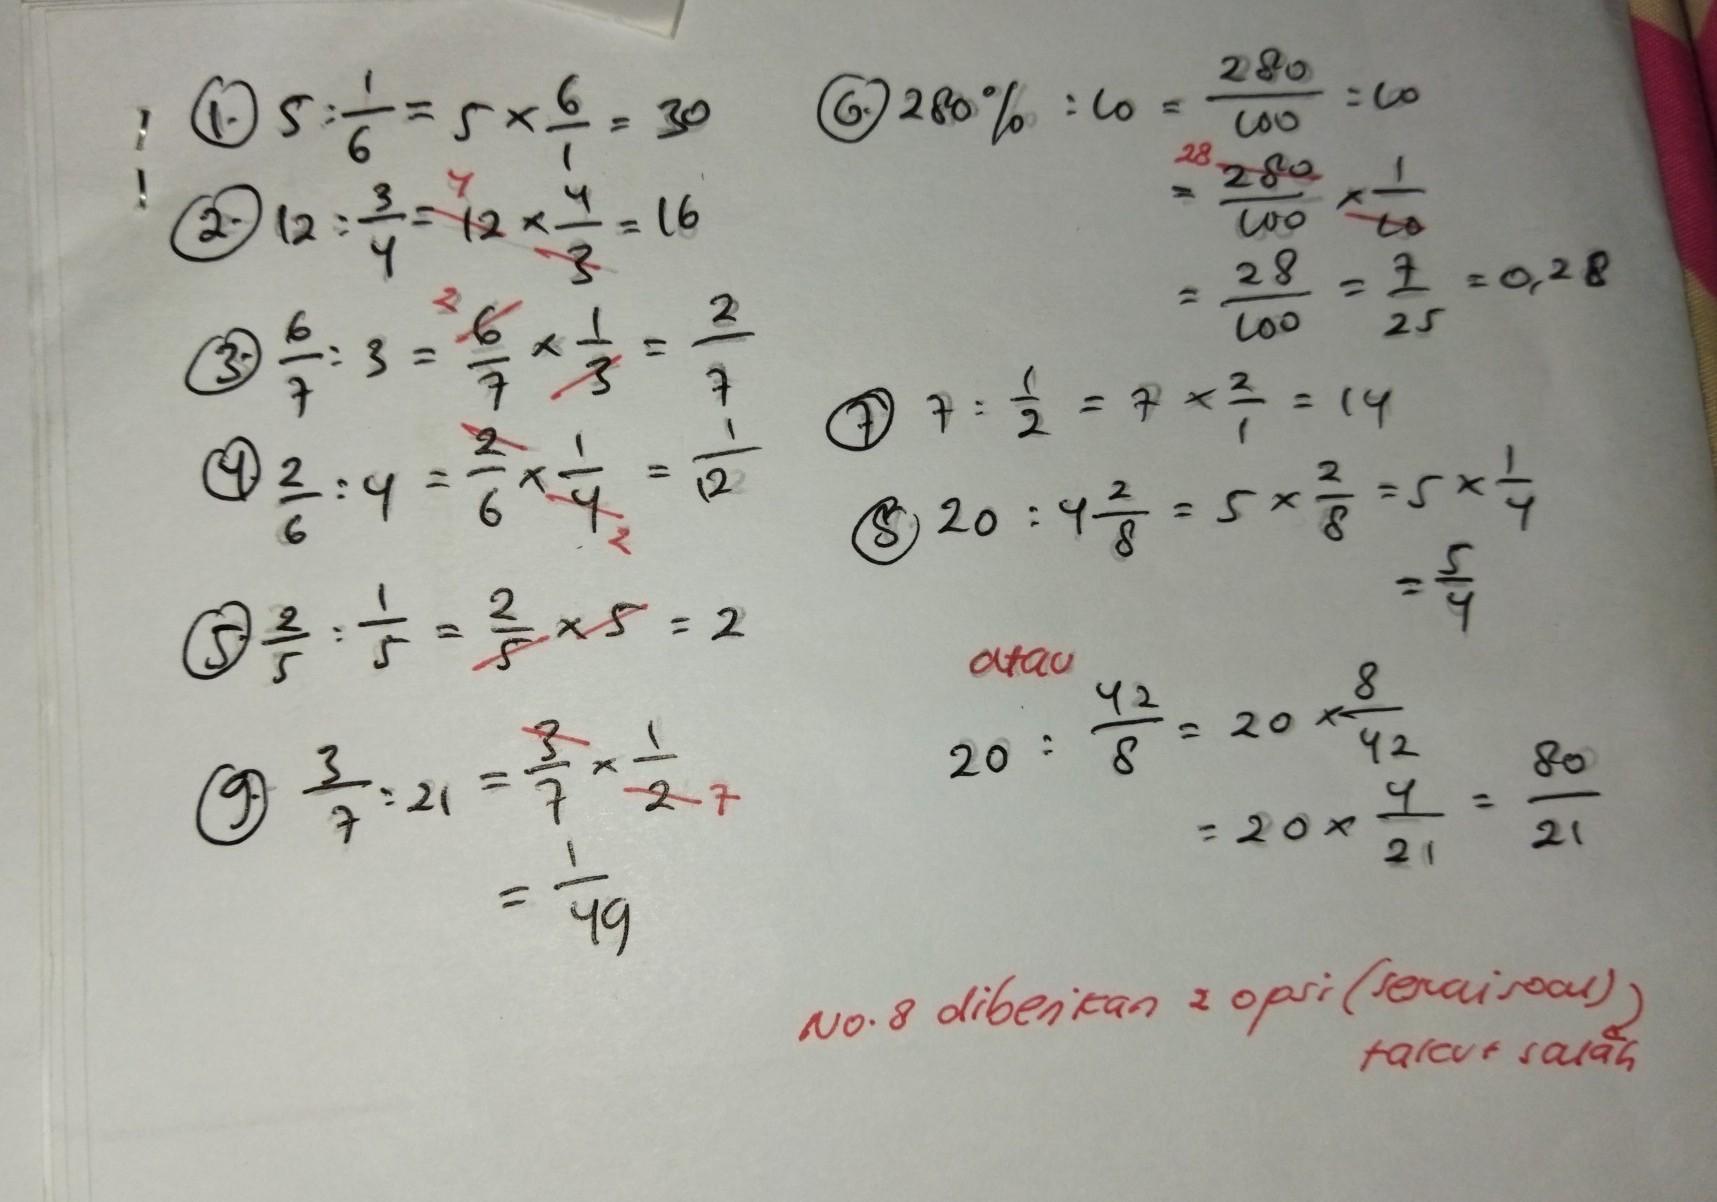 1. 5 : 1/6 = 5 × 6/1 = 30
2. 12 : 3/4 = 12 4 × 4/3 = 16
3. 6/7 : 3 = 2 6/7 × 1/3 = 2/7
4. 2/6 : 4 = 2/6 × 1/4 2 = 1/12
5. 2/5 : 1/5 = 2/5 × 5 = 2
9. 3/7 : 21 = 3/7 × 1/2 7
= 1/49
6. 280% : 10 = 280/100 : 10
= 28 280/100 × 1/10
= 28/100 = 7/25 = 0,28
7. 7 : 1/2 = 7 × 2/1 = 14
8. 20 : 4 2/8 = 5 × 2/8 = 5 × 1/4
= 5/4
atau
20 : 42/8 = 20 × 8/42
= 20 × 4/21 = 80/21
No. 8 diberikan 2 opsi
takut salah